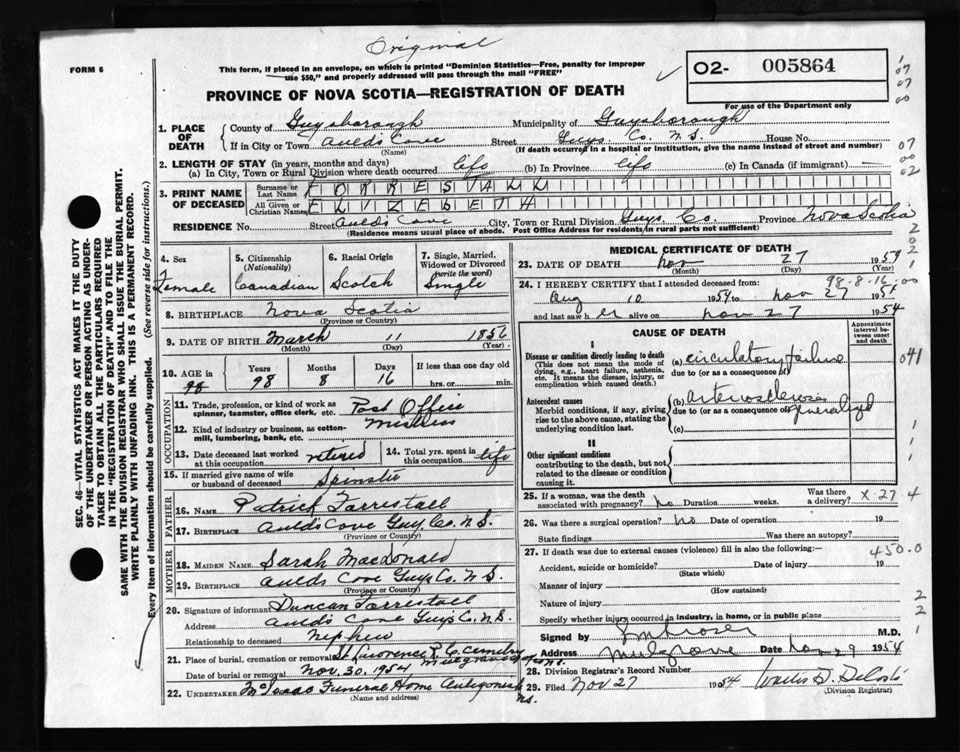 Original
FORM 6
This form, if placed in an envelope, on which is printed "Dominion Statistics—Free, penalty for improper
use $50," and properly addressed will pass through the mail "FREE"
O2- 005864
For use of the Department only
PROVINCE OF NOVA SCOTIA—REGISTRATION OF DEATH
1. PLACE OF DEATH
County of Guysborough Municipality of Guysborough
If in City or Town Aulds Cove Street Guys Co. N.S. House No.
(Name) (If death occurred in a hospital or institution, give the name instead of street and number)
2. LENGTH OF STAY (in years, months and days)
(a) In City, Town or Rural Division where death occurred life (b) In Province life (c) In Canada (if immigrant) —
3. PRINT NAME OF DECEASED
Surname or Last Name FORRESTALL
All Given or Christian Names ELIZEBETH
RESIDENCE No. Street Aulds Cove City, Town or Rural Division Guys Co. Province Nova Scotia
(Residence means usual place of abode. Post Office Address for residents in rural parts not sufficient)
4. Sex
Female
5. Citizenship (Nationality)
Canadian
6. Racial Origin
Scotch
7. Single, Married, Widowed or Divorced (write the word)
Single
8. BIRTHPLACE Nova Scotia
(Province or Country)
9. DATE OF BIRTH March 11 1856
(Month) (Day) (Year)
10. AGE in 98
Years 98 Months 8 Days 16 If less than one day old
hrs. or min.
OCCUPATION
11. Trade, profession, or kind of work as spinner, teamster, office clerk, etc. Post Office
12. Kind of industry or business, as cotton-mill, lumbering, bank, etc. Mistress
13. Date deceased last worked at this occupation retired
14. Total yrs. spent in this occupation life
15. If married give name of wife or husband of deceased Spinster
FATHER
16. NAME Patrick Forrestall
17. BIRTHPLACE Aulds Cove Guy. Co. N.S.
(Province or Country)
MOTHER
18. MAIDEN NAME Sarah MacDonald
19. BIRTHPLACE Aulds Cove Guys Co. N.S.
(Province or Country)
20. Signature of informant Duncan Forrestall
Address Aulds Cove Guys Co. N.S.
Relationship to deceased Nephew
21. Place of burial, cremation or removal St Lawrence R.C. Cemetry Mulgrave
Date of burial or removal Nov. 30, 1954
22. UNDERTAKER McIsaac Funeral Home Antigonish N.S.
(Name and address)
MEDICAL CERTIFICATE OF DEATH
23. DATE OF DEATH Nov 27 1954
(Month) (Day) (Year)
98-8-16
24. I HEREBY CERTIFY that I attended deceased from:
Aug 10 1954 to Nov 27 1954
and last saw her alive on Nov 27 1954
CAUSE OF DEATH
Approximate interval between onset and death
I
Disease or condition directly leading to death
(This does not mean the mode of dying, e.g., heart failure, asthenia, etc. It means the disease, injury, or complication which caused death.)
(a) circulatory failure
due to (or as a consequence of)
Antecedent causes
Morbid conditions, if any, giving rise to the above cause, stating the underlying condition last.
(b) arteriosclerosis generalized
due to (or as a consequence of)
(c)
II
Other significant conditions
contributing to the death, but not related to the disease or condition causing it.
25. If a woman, was the death associated with pregnancy? No Duration weeks. Was there a delivery?
X-27-4
26. Was there a surgical operation? No Date of operation 19
State findings Was there an autopsy?
27. If death was due to external causes (violence) fill in also the following:—
450.0
Accident, suicide or homicide? Date of injury 19
(State which)
Manner of injury
(How sustained)
Nature of injury
Specify whether injury occurred in industry, in home, or in public place
Signed by M.D.
Address Mulgrave Date Nov 29 1954
28. Division Registrar's Record Number
29. Filed Nov 27 1954
(Division Registrar)
041
SEC. 46—VITAL STATISTICS ACT MAKES IT THE DUTY
OF THE UNDERTAKER OR PERSON ACTING AS UNDER-
TAKER TO OBTAIN ALL THE PARTICULARS REQUIRED
IN THE "REGISTRATION OF DEATH" AND TO FILE THE
SAME WITH THE DIVISION REGISTRAR WHO SHALL ISSUE THE BURIAL PERMIT.
WRITE PLAINLY WITH UNFADING INK. THIS IS A PERMANENT RECORD.
Every item of information should be carefully supplied. (See reverse side for instructions.)